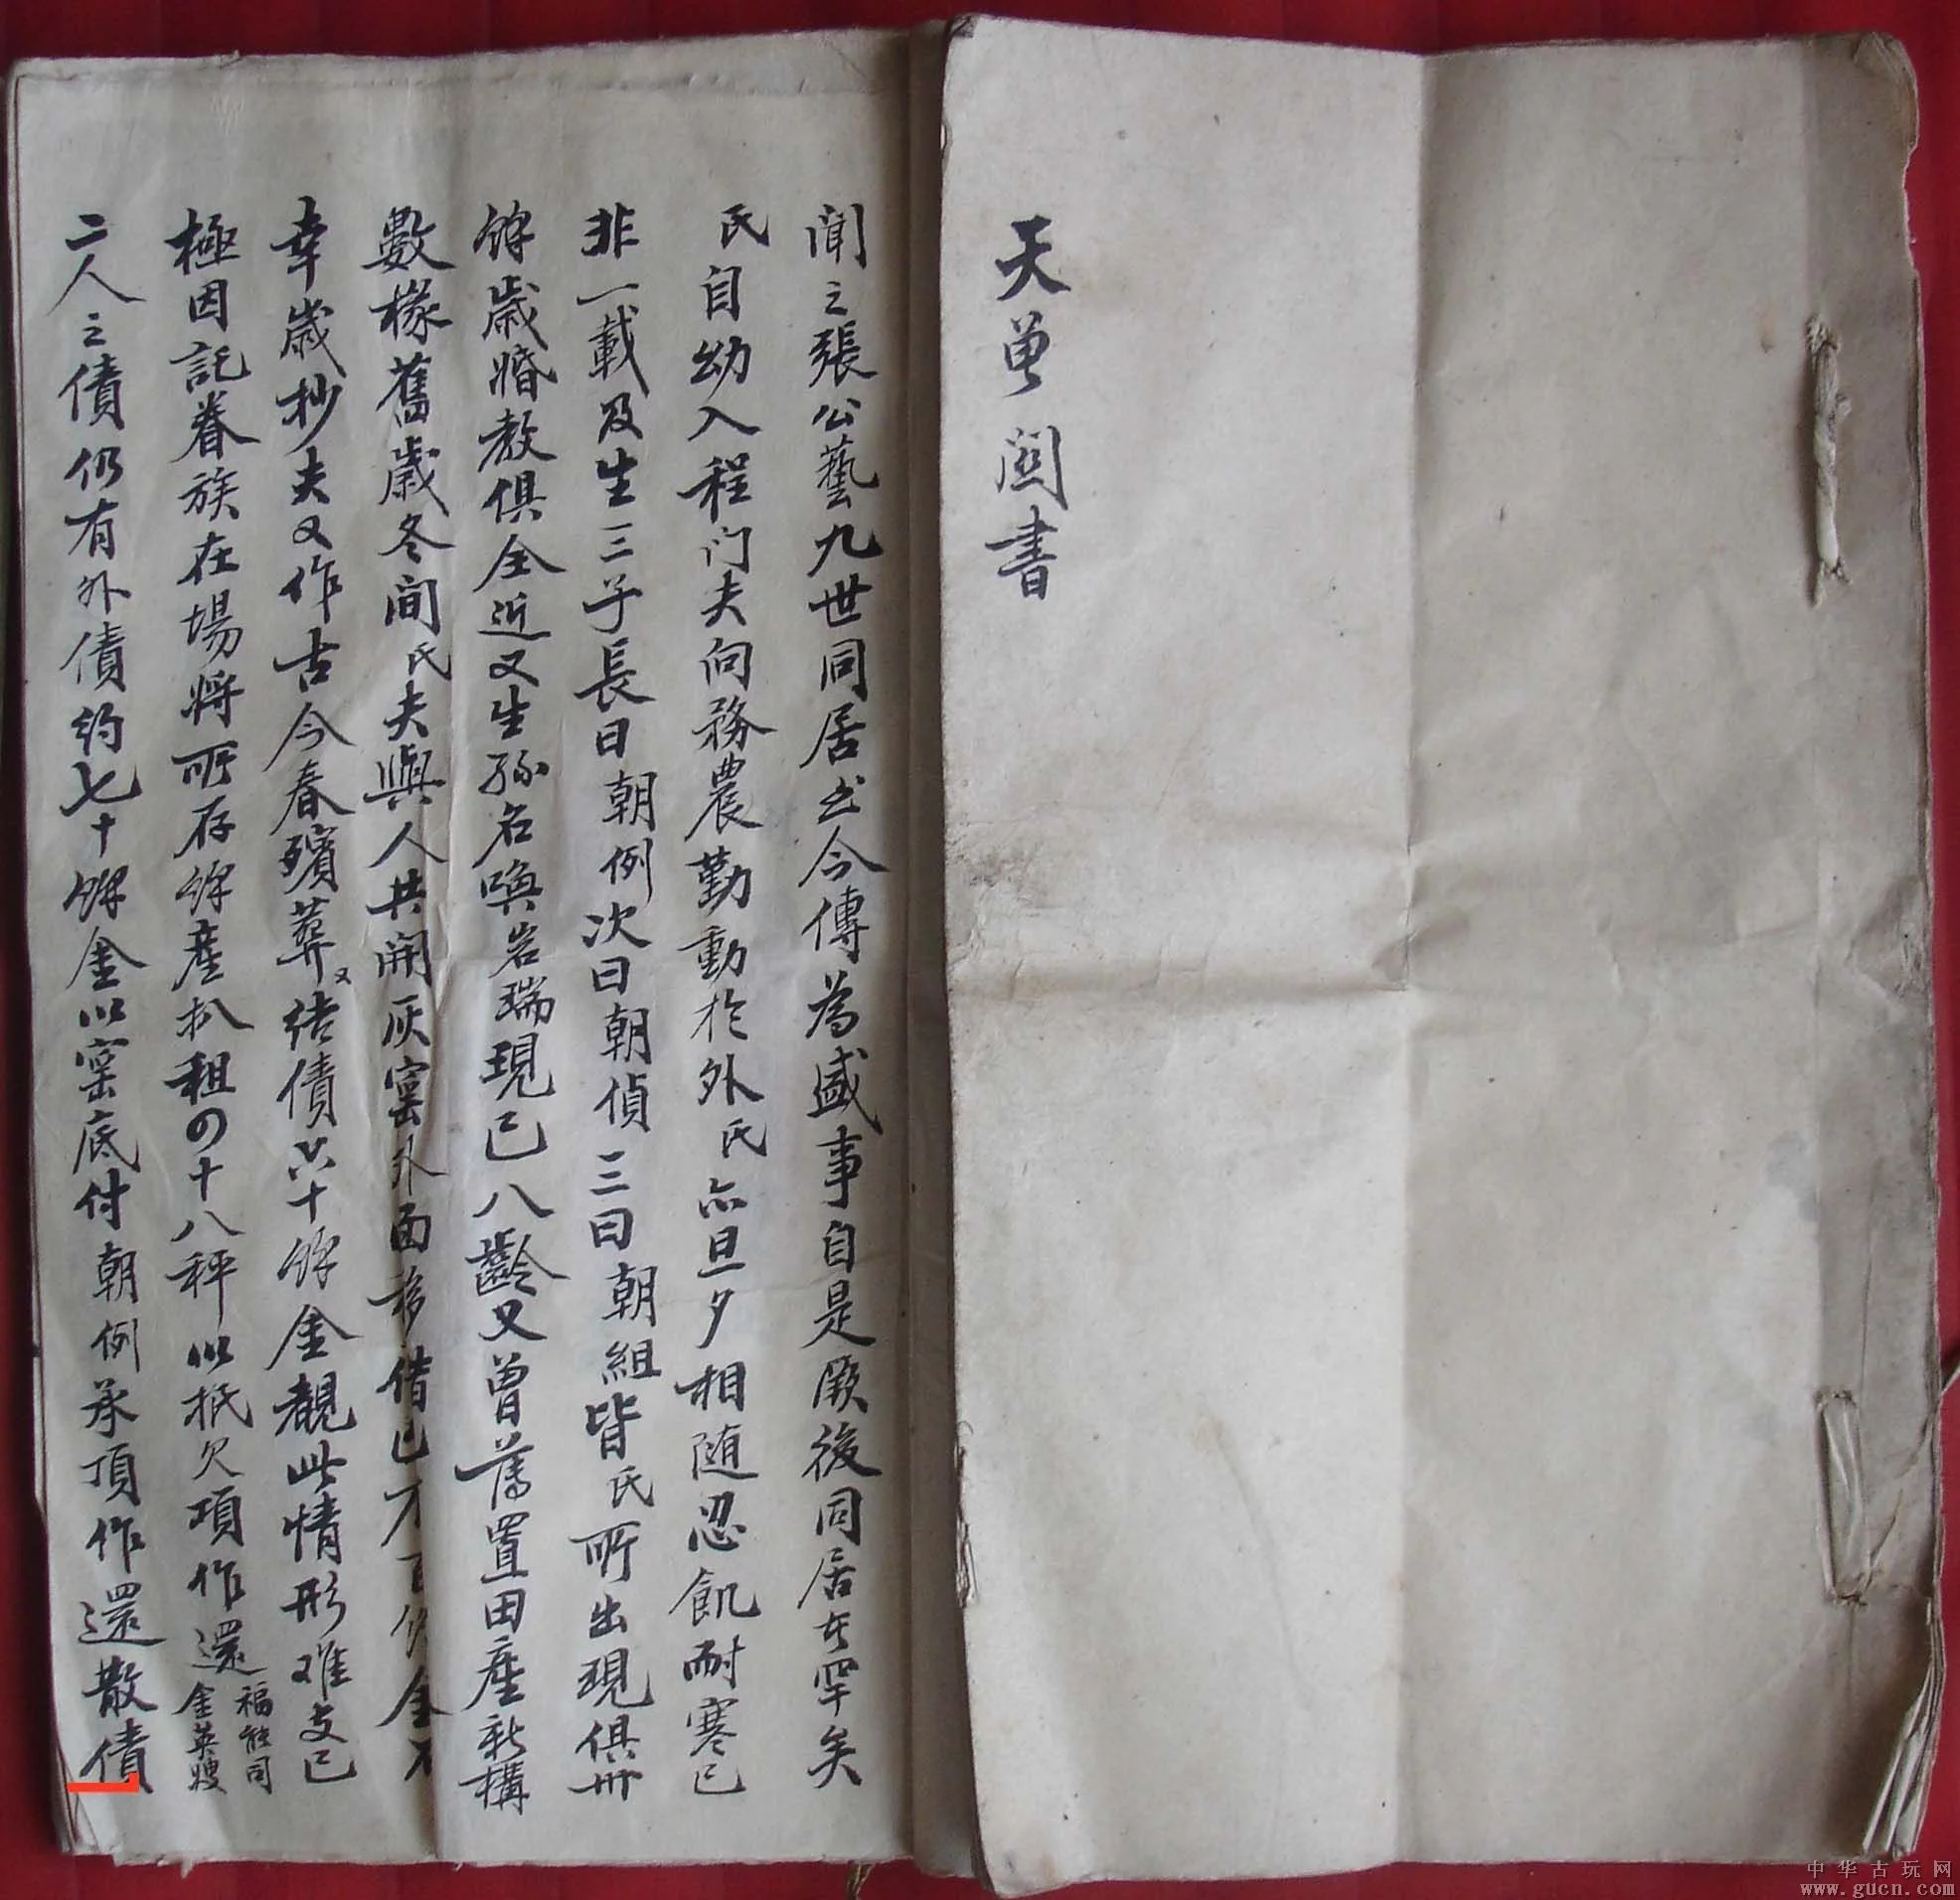 天 鬮書
聞之張公藝九世同居於今傳為盛事自是厥後同居者罕矣
氏自幼入程门夫向務農勤動於外氏亦旦夕相随忍飢耐寒已
非一載及生三子長曰朝例次曰朝偵三曰朝組皆氏所出現俱卅
馀歲婚教俱全近又生孫名喚岩瑞現已八齡又曾舊置田産新構
數椽舊歲冬间氏夫與人共開灰窑外面移借已不百馀金不
幸歲抄夫又作古今春殯葬又结債六十馀金覩此情形难支已
極因託眷族在場將所存馀産扒租四十八秤以抵欠項作還福能同金英嫂
二人之債仍有外債约七十馀金以窑底付朝例承頂作還散債
中华古玩网
www.gucn.com